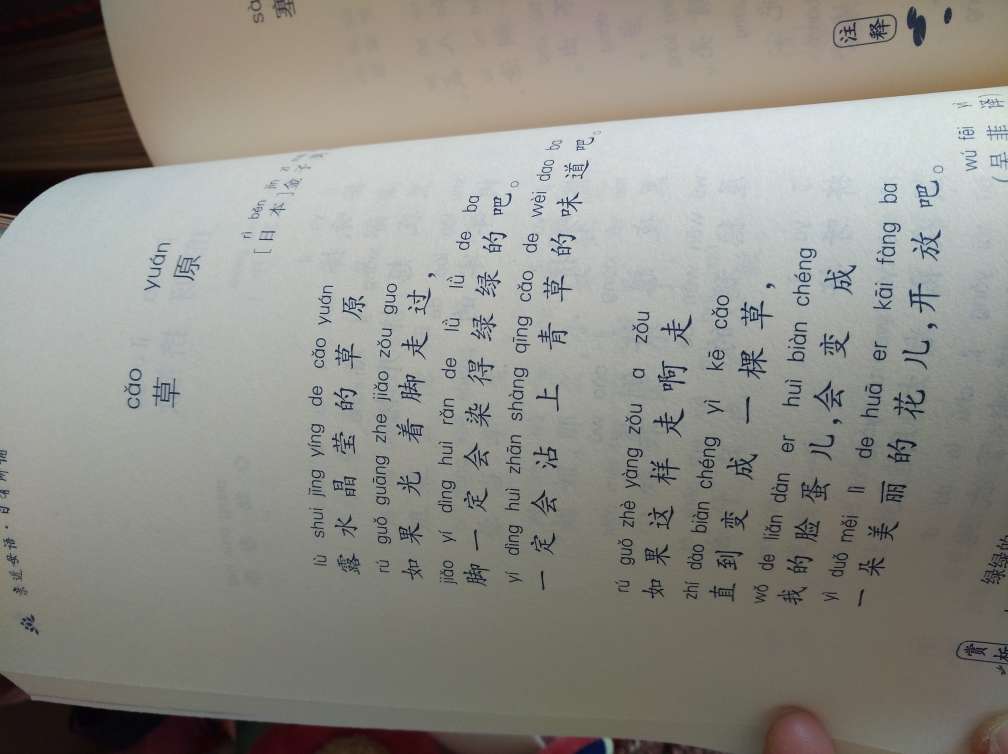 亲近母语·日有所诵
cǎo yuán
草 原
rì běn jīn
[日本]金子
lù shuǐ jīng yíng de cǎo yuán
露水晶莹的草原
rú guǒ guāng zhe jiǎo zǒu guo
如果光着脚走过，
jiǎo yí dìng huì rǎn de lǜ lǜ de ba
脚一定会染得绿绿的吧。
yí dìng huì zhān shàng qīng cǎo de wèi dao ba
一定会沾上青草的味道吧。
rú guǒ zhè yàng zǒu a zǒu
如果这样走啊走
zhí dào biàn chéng yì kē cǎo
直到变成一棵草，
wǒ de liǎn dàn er huì biàn chéng
我的脸蛋儿，会变成
yì duǒ měi lì de huā er kāi fàng ba
一朵美丽的花儿，开放吧。
wú fēi yì
（吴菲 译）
赏
绿绿的
塞
注释